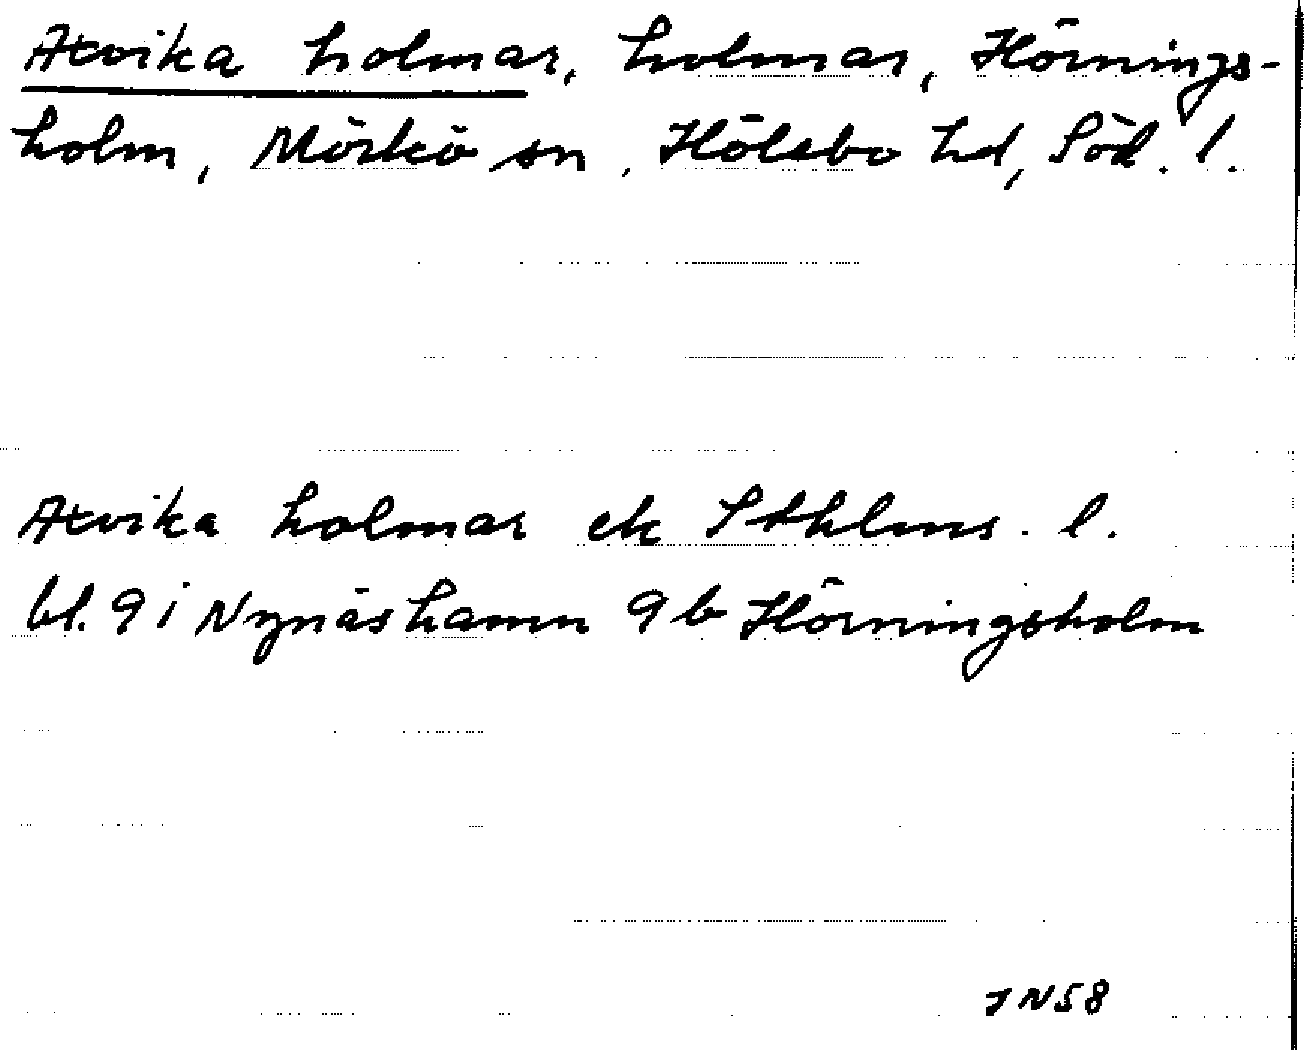 Atvika holmar, holmar, Hörnings-
holm, Mörkö sn, Hölebo hd, Söd. l.
Atvika holmar ek Sthlms. l.
bl. 9 i Nynäshamn 9 b Hörningsholm
JN58